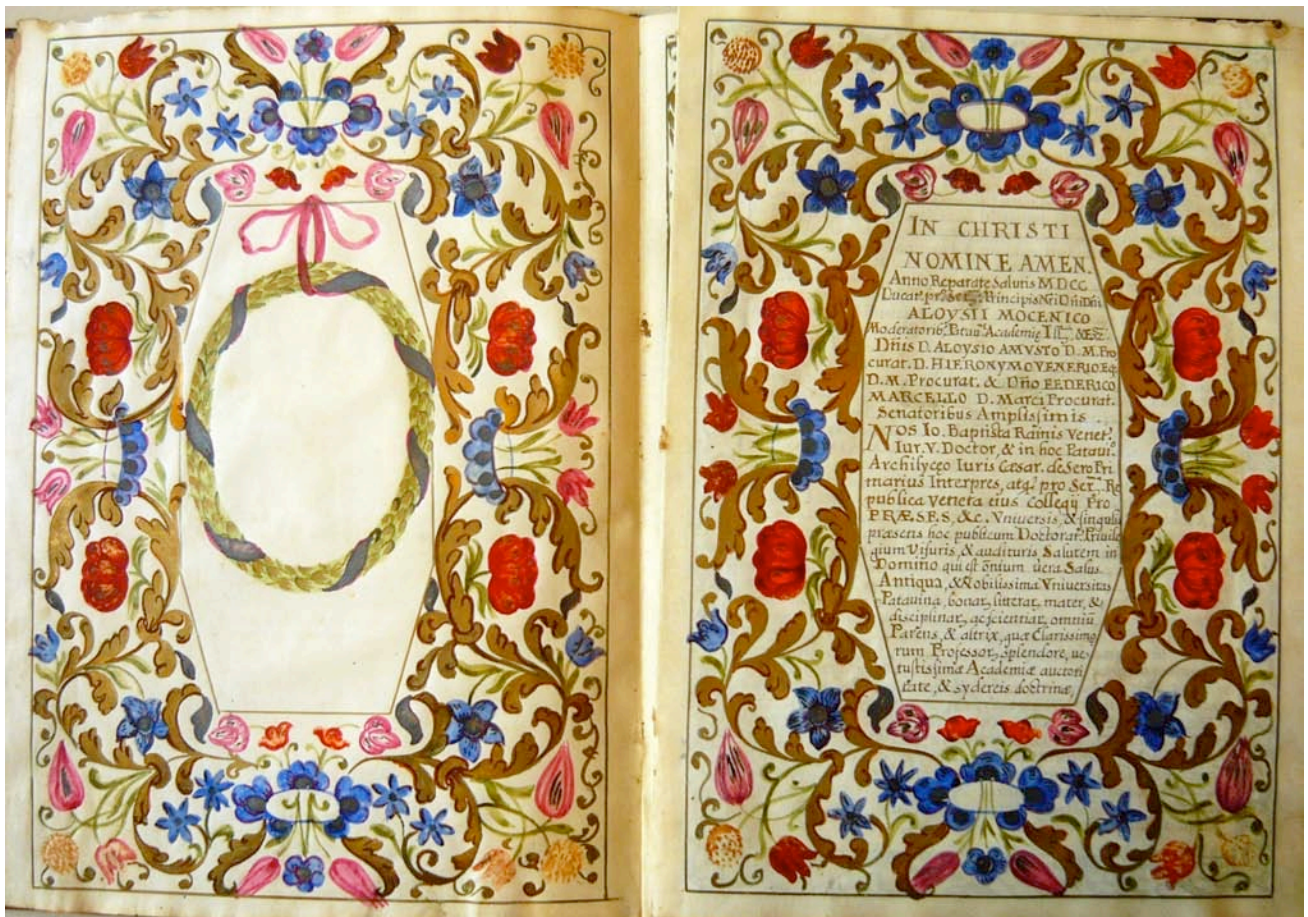 IN CHRISTI
NOMINE AMEN.
Anno Reparatæ Salutis M.DCC
Ducat. pro Ser. Principis
ALOYSII MOCENICO
Moderatorib. Patau. Academiæ Ill. &
Dñis D. ALOYSIO AMVSTO D. M. Pro
curat. D. HIERONYMO VENERIO Eq.
D. M. Procurat. & Dño FEDERICO
MARCELLO D. Marci Procurat.
Senatoribus Amplissimis
NOS Io. Baptista Venet.
Iur. V. Doctor, & in hoc Pataui.
Archilyceo Iuris Cæsar. de Sero Pri
marius Interpres, atq. pro Ser. Re
publica veneta eius Collegij Pro
PRÆSES, &c. Vniuersis, & singulis
præsens hoc publicum Doctorat. Priuile
gium Visuris, & audituris Salutem in
Domino qui est õnium uera Salus.
Antiqua, & Nobilissima Vniuersitas
Patauina, bonar. litterar. mater, &
disciplinar. ac scientiar. omniũ
Parens, & altrix, quæ Clarissimo
rum Professor. splendore, ue
tustissimæ Academiæ auctori
tate, & sydereis doctrinæ